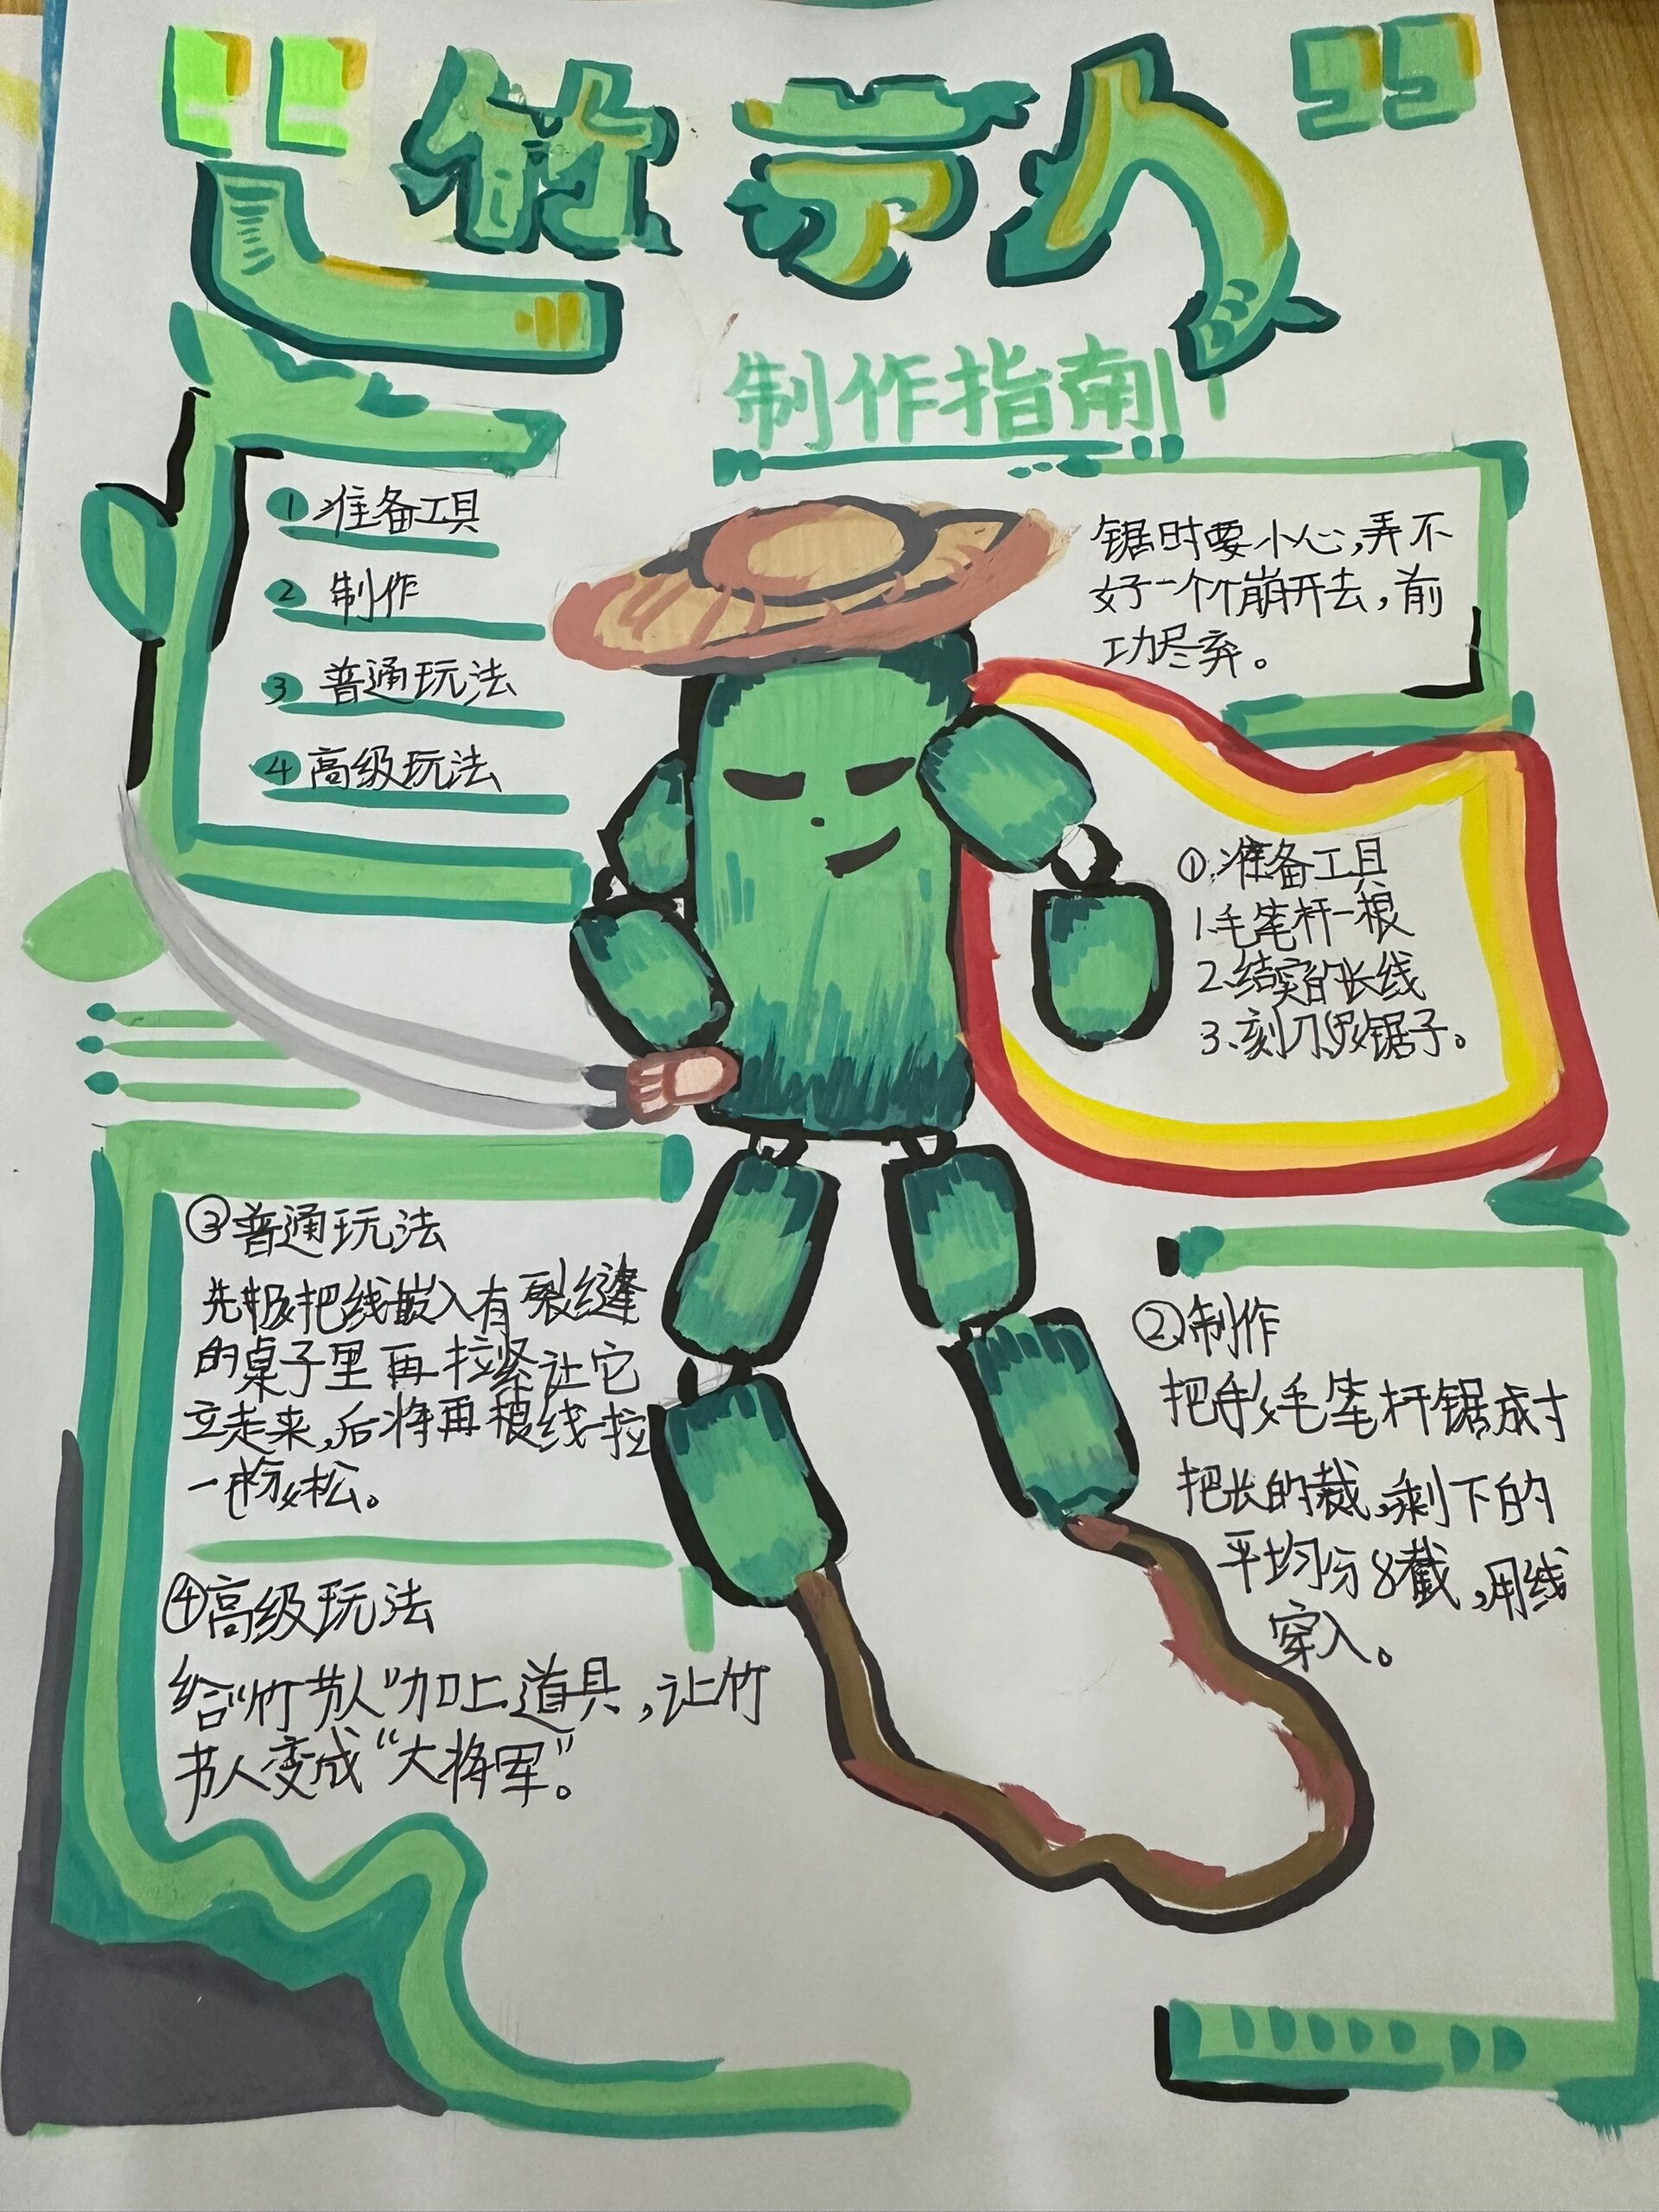 “竹节人”
制作指南
①准备工具
②制作
③普通玩法
④高级玩法
锯时要小心,弄不
好一个个崩开去,前
功尽弃。
①.准备工具
1.毛笔杆一根
2.结实的长线
3.刻刀 锯子。
③普通玩法
先 把线嵌入有裂缝
的桌子里再拉紧让它
立走来,后将再根线一拉
一 松。
②制作
把 毛笔杆锯成寸
把长的裁,剩下的
平均分8截,用线
穿入。
④高级玩法
给“竹节人”加上道具,让竹
节人变成“大将军”。